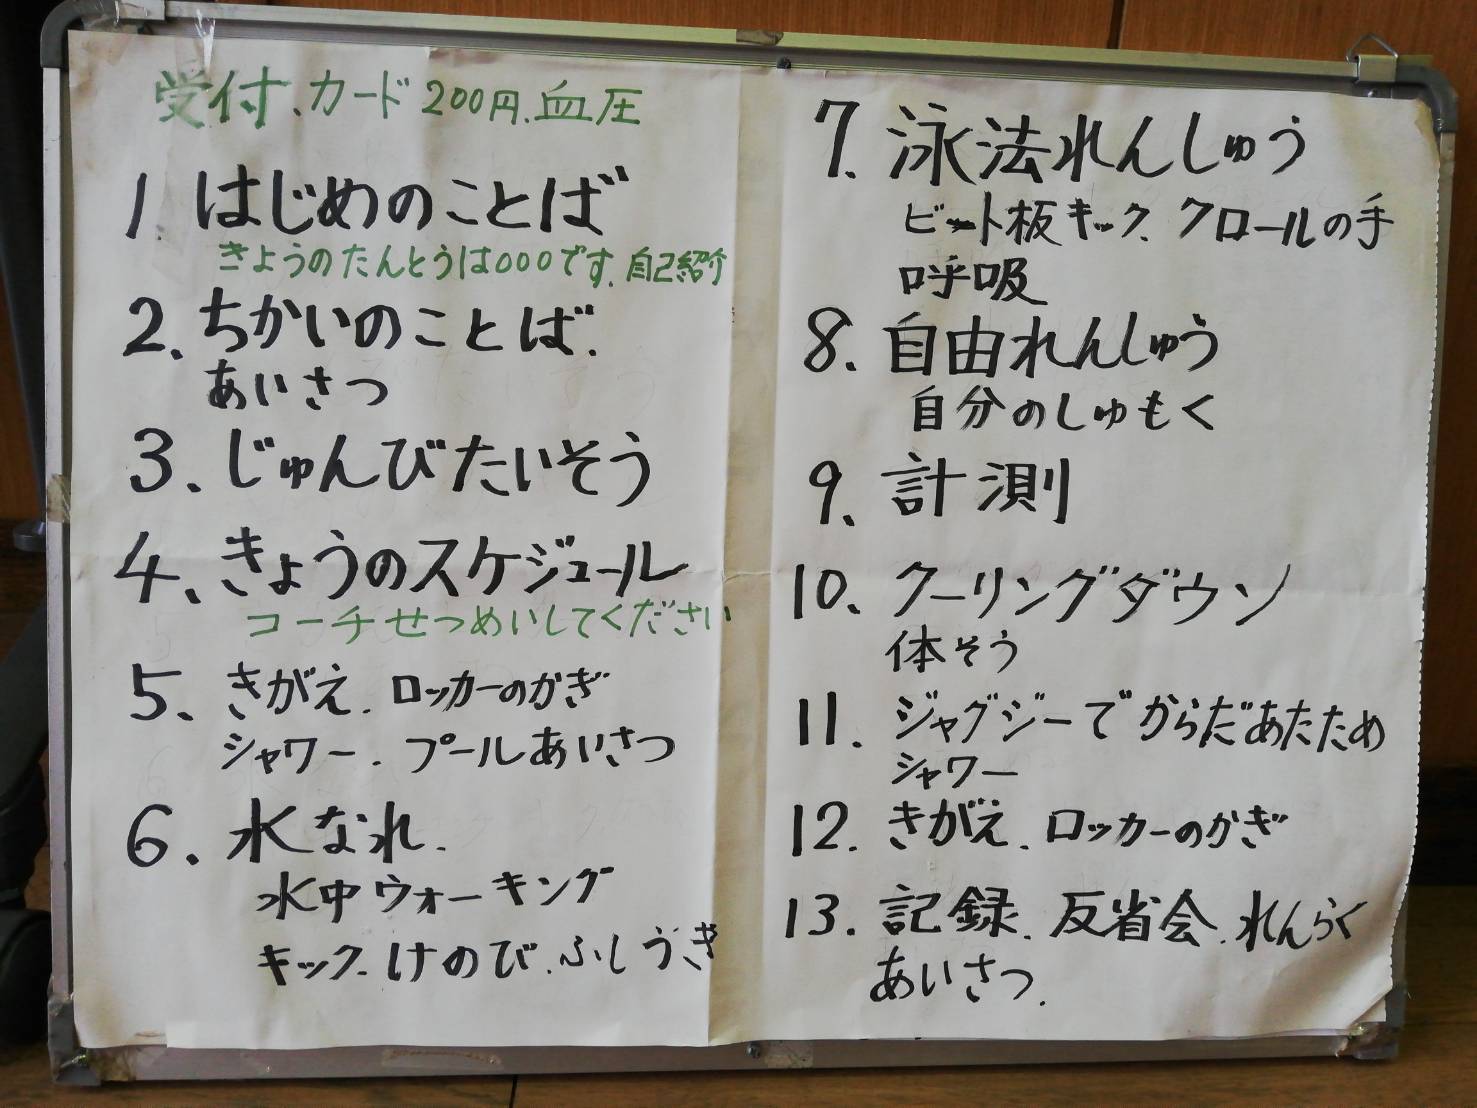 受付、カード200円、血圧
1. はじめのことば
きょうのたんとうは○○○です。自己紹介
2. ちかいのことば.
あいさつ
3. じゅんびたいそう
4. きょうのスケジュール
コーチせつめいしてください
5. きがえ. ロッカーのかぎ
シャワー. プールあいさつ
6. 水なれ.
水中ウォーキング
キック. けのび. ふしうき
7. 泳法れんしゅう
ビート板キック. クロールの手
呼吸
8. 自由れんしゅう
自分のしゅもく
9. 計測
10. クーリングダウン
体そう
11. ジャグジーでからだあたため
シャワー
12. きがえ. ロッカーのかぎ
13. 記録. 反省会. れんらく
あいさつ.